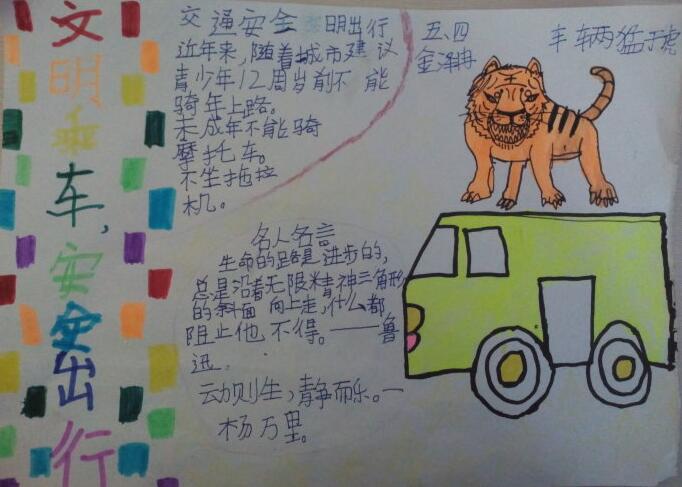 文明乘车,安全出行
交通安全 文明出行
近年来,随着城市建议
青少年12周岁前不能
骑车上路。
未成年不能骑
摩托车。
不坐拖拉
机。
五、四
金泽冉
车辆猛于虎
名人名言
生命的路是进步的,
总是沿着无限精神三角形
的斜面向上走,什么都
阻止他不得。——鲁
迅.
动则生,静而乐。—
杨万里。